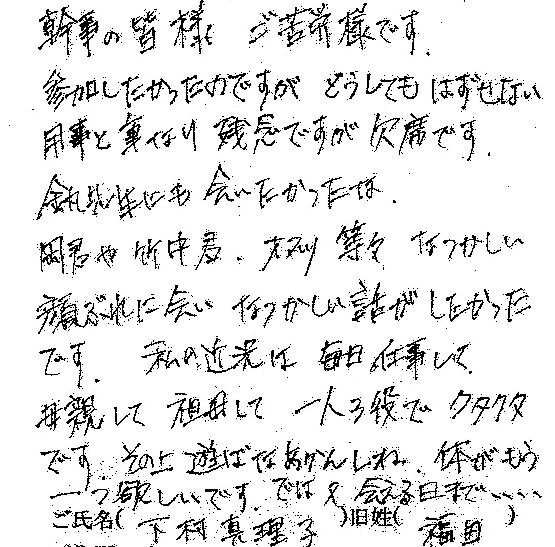 幹事の皆様 ご苦労様です.
参加したかったのですが どうしてもはずせない
用事と重なり 残念ですが 欠席です.
先生にも 会いたかったな.
岡君や 竹中君、 等々 なつかしい
顔ぶれに会い なつかしい話がしたかった
です. 私の近況は 毎日 仕事して、
母親して 祖母して 一人3役で クタクタ
です. その上 遊ばなあかんしね. 体がもう
一つ欲しいです. では又 会える日まで....
ご氏名( 下村真理子 )旧姓( 福田 )